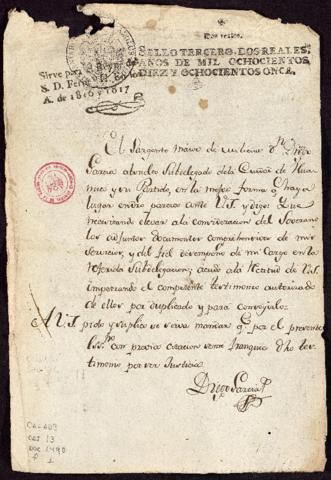 Dos reales.
SELLO TERCERO, DOS REALES,
AÑOS DE MIL OCHOCIENTOS
DIEZ Y OCHOCIENTOS ONCE.
Sirve para el Reyn. de
S. D. Fern. VII.
A. de 1816 y 1817
El Sargento maior de milicias Dn. Diego
Garcia Subdelegado dela Ciudad de Hua
nuco y su Partido, en la mejor forma q. haya
lugar en dro parezco ante V.S. y digo: Que
necesitando elevar a la concideracion del Sobera
no los adjuntos documentos comprehensivos de mis
servicios, y del fiel desempeño de mi cargo en la
referida Subdelegacion; acudo ala rectitud de V.S.
impetrando el competente testimonio autorizado
de ellos por duplicado y para conseguirlo:
A V.S. pido y suplico se sirva mandar q. por el presente
Ess.no con previa citacion seme franquee dho tes
timonio por ser Justicia
Diego Garcia
CA-GO3
CAJ 13
DOC 1490
F 1